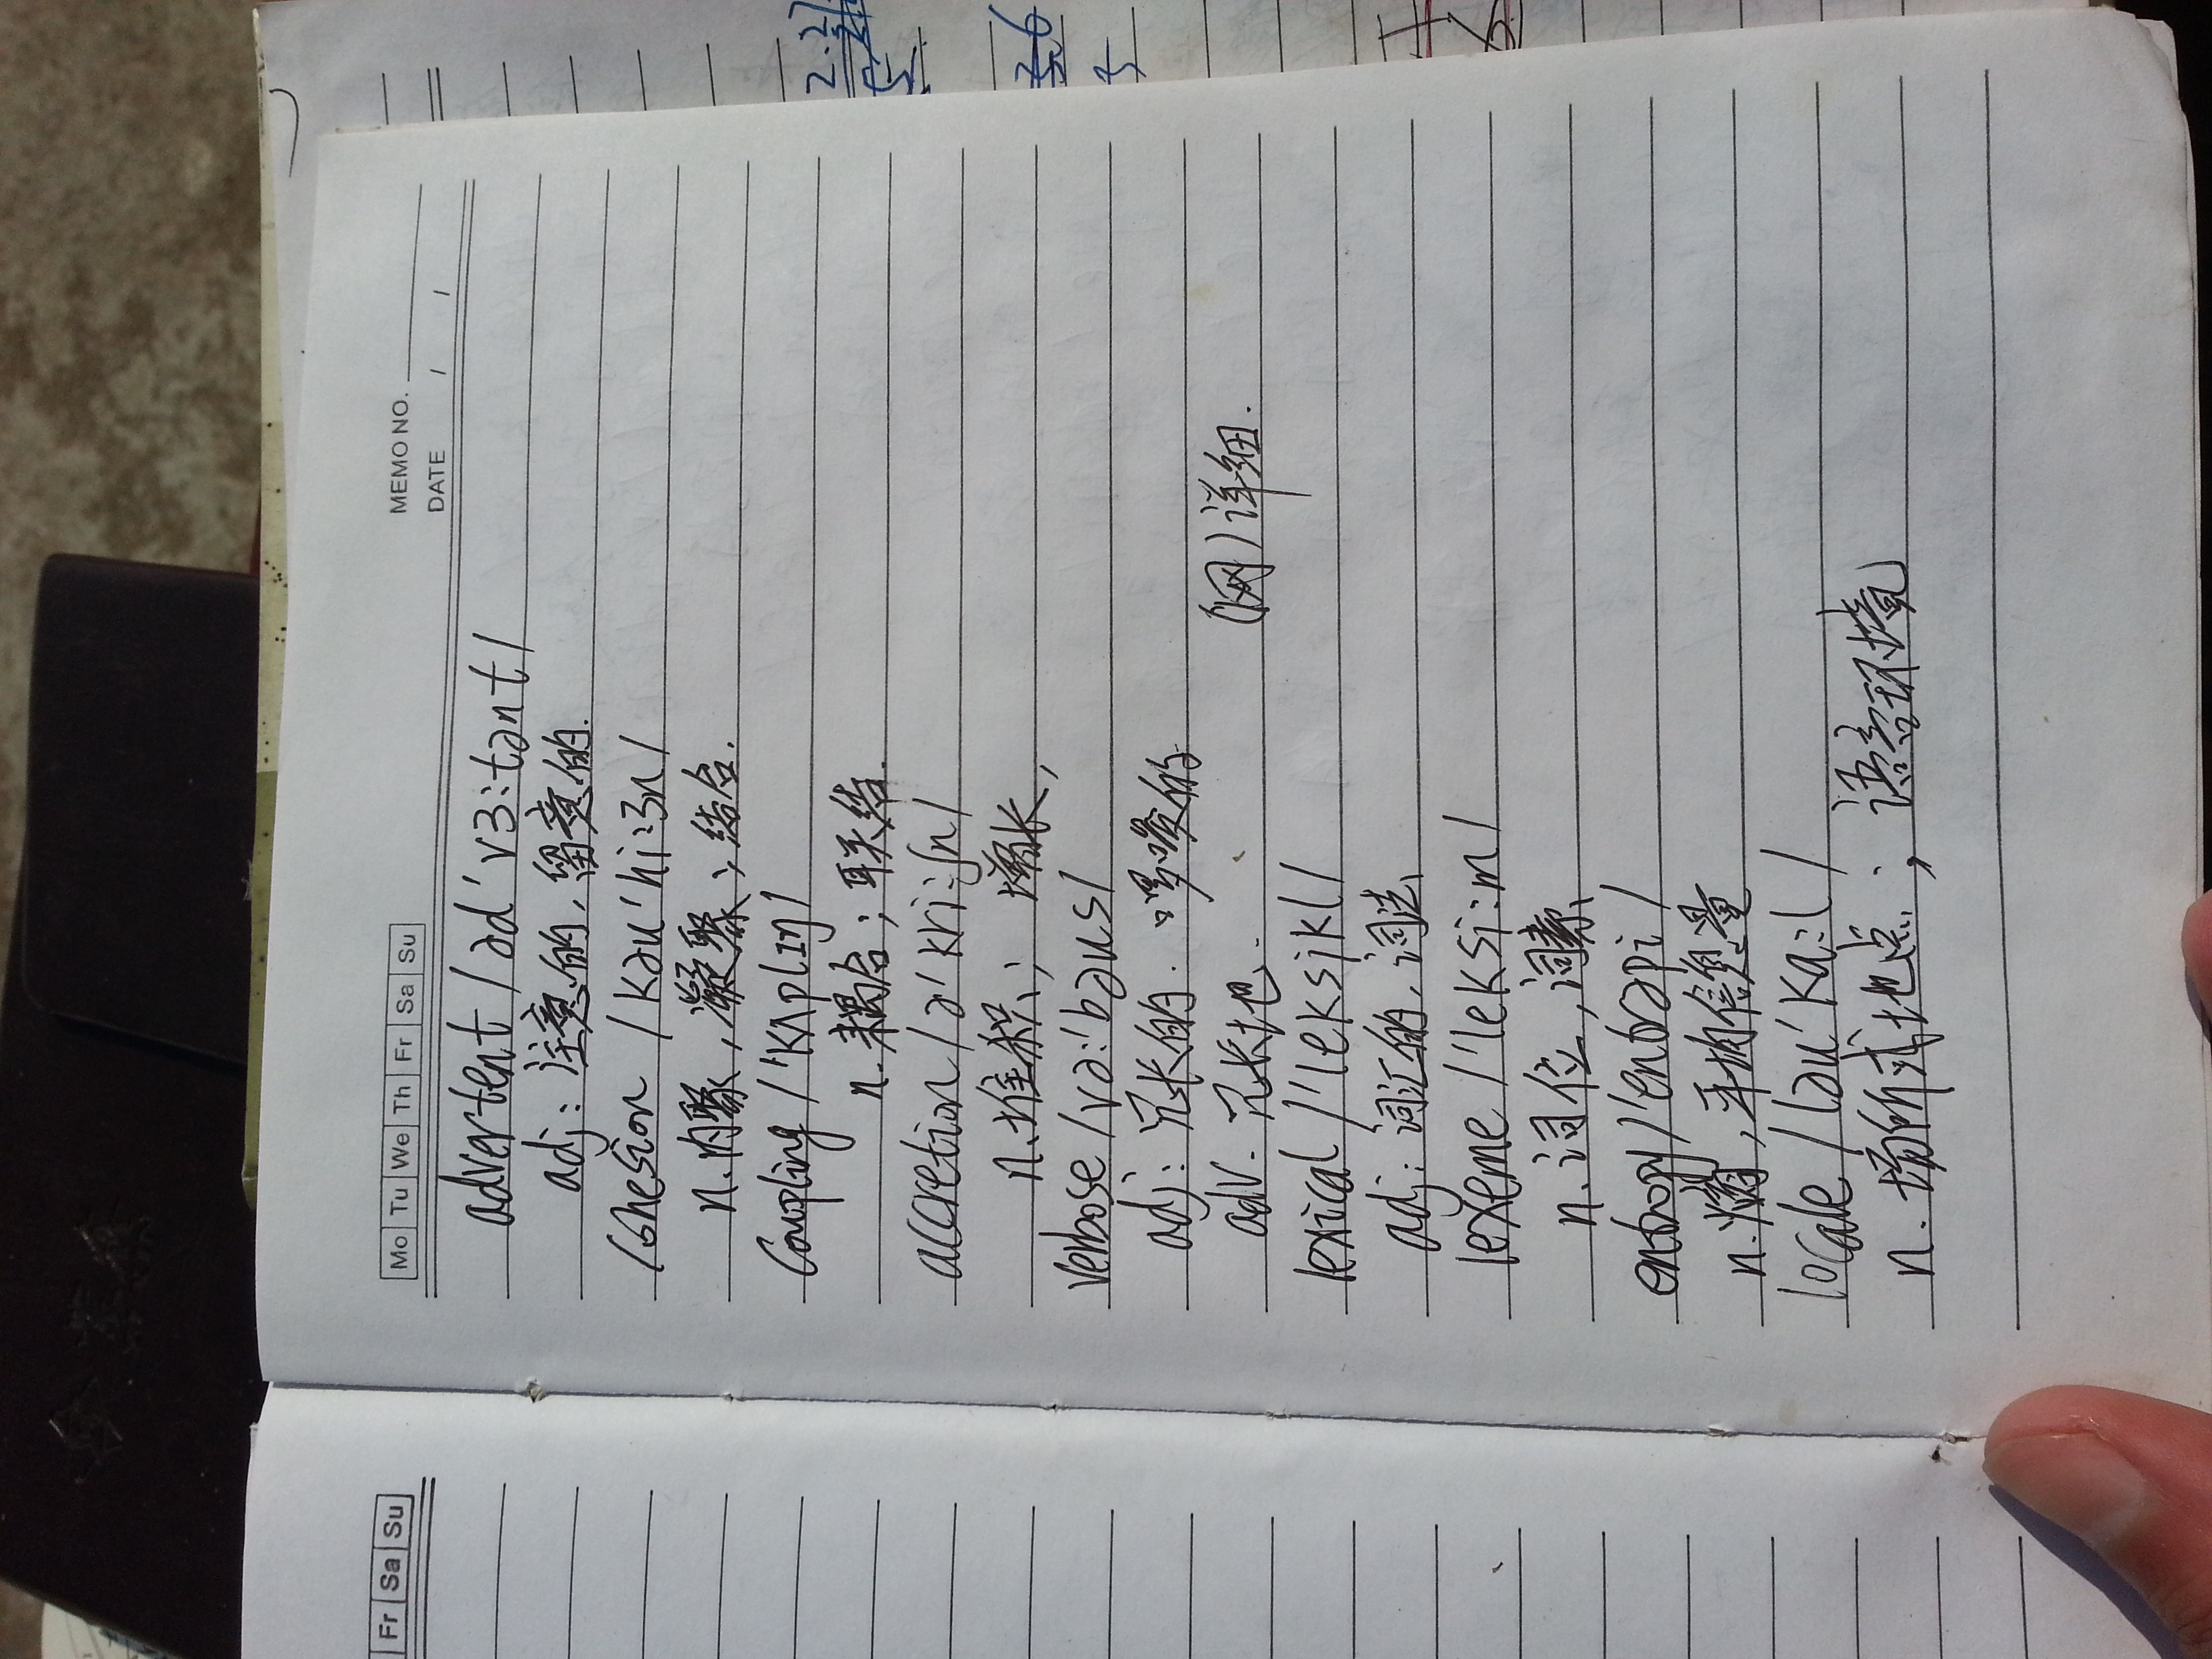 Fr Sa Su
Mo Tu We Th Fr Sa Su
MEMO NO.
DATE / /
advertent /əd'vɜ:tənt/
adj: 注意的, 留意的.
Cohesion /kəu'hi:ʒn/
n. 内聚, 凝聚; 结合.
Coupling /'kʌplɪŋ/
n. 耦合; 联结.
accretion /ə'kri:ʃn/
n. 堆积; 增长,
verbose /və:'bəus/
adj: 冗长的. 啰唆的
adv. 冗长地. (网) 详细.
lexical /'leksikl/
adj: 词汇的, 词法
lexeme /'leksi:m/
n. 词位, 词素
entropy /'entrəpi/
n. 熵, 平均信息量
locale /ləu'ka:l/
n. 场所或地点; 语言环境